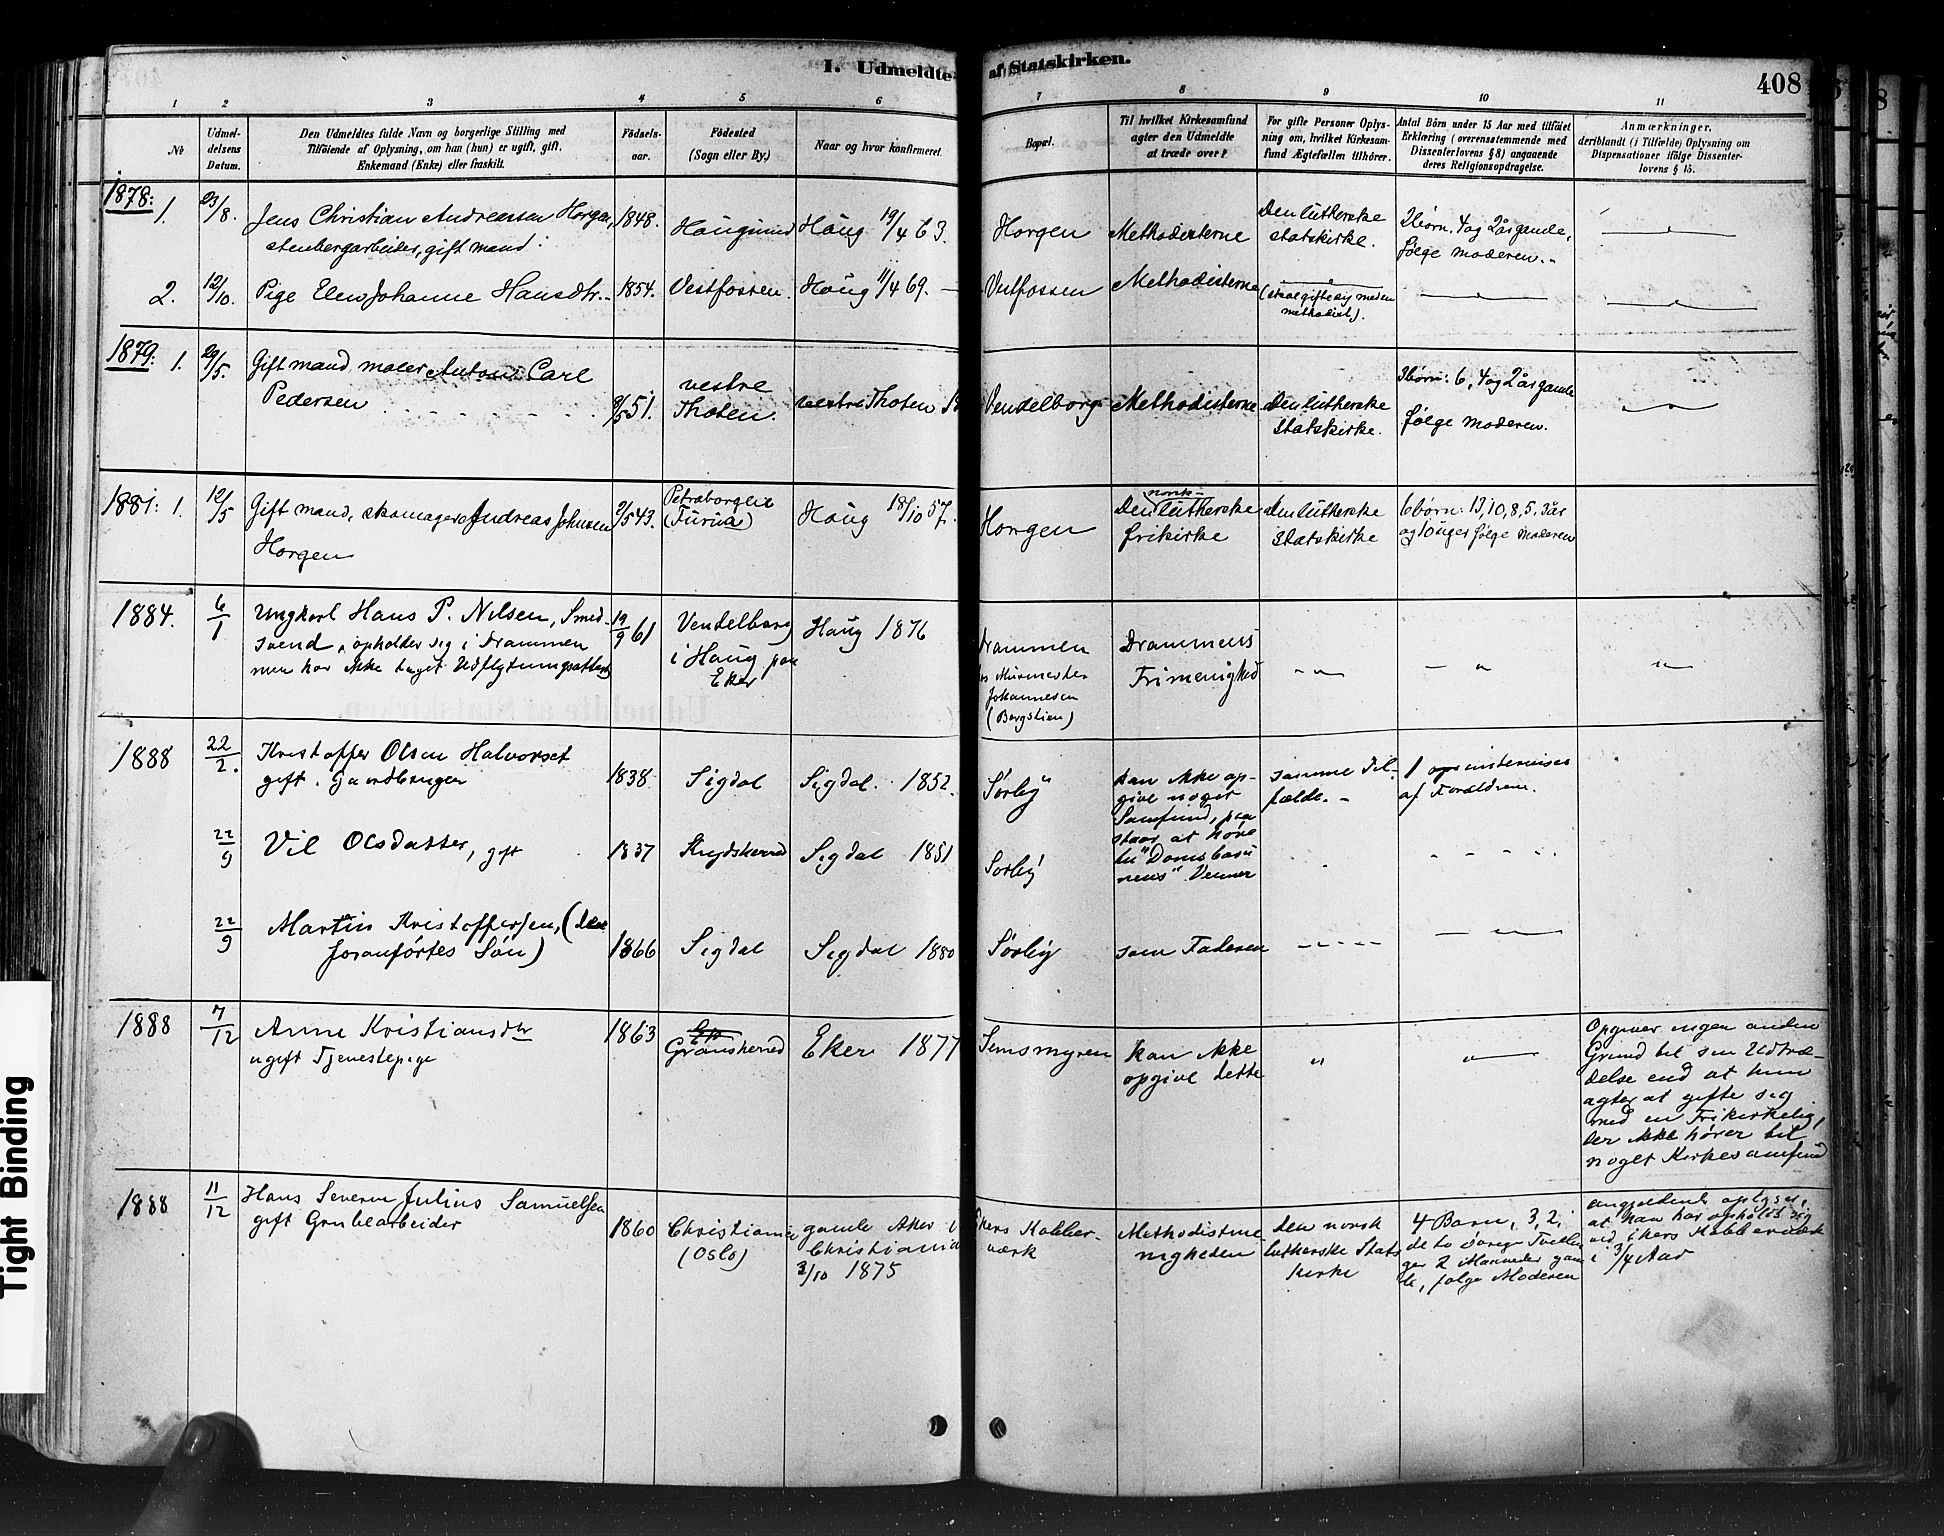 I. Udmeldte af Statskirken.
408
1 2 3 4 5 6 7 8 9 10 11
No
Udmel-
delsens
Datum.
Den Udmeldtes fulde Navn og borgerlige Stilling med
Tilföiende af Oplysning, om han (hun) er ugift, gift,
Enkemand (Enke) eller fraskilt.
Födsels-
aar.
Födested
(Sogn eller By.)
Naar og hvor konfirmeret.
Bopæl.
Til hvilket Kirkesamfund
agter den Udmeldte
at træde over?
For gifte Personer Oplys-
ning om, hvilket Kirkesam-
fund Ægtefællen tilhörer.
Antal Börn under 15 Aar med tilföiet
Erklæring (overensstemmende med
Dissenterlovens § 8) angaaende
deres Religionsopdragelse.
Anmærkninger,
deriblandt (i Tilfælde) Oplysning om
Dispensationer ifölge Dissenter-
lovens § 15.
1878:
1. 23/8. Jens Christian Andreassen Horgen,
stenbergarbeider, gift mand.
1848. Haugsund Haug 19/4 63.
Horgen Methodisterne
Den lutherske
statskirke.
2 börn, 4 og 2 år gamle,
følge moderen.
2. 12/10. Pige Elen Johanne Hansdtr. 1854. Vestfossen. Haug 11/4 69.
Vestfossen Methodisterne
(skal gifte sig med en
methodist).
1879: 1. 29/5. Gift mand, maler Anton Carl
Pedersen
8/5 51.
vestre
Thoten.
vestre Thoten
Vendelborg Methodisterne
Den lutherske
statskirke.
3 børn: 6, 4 og 2 år gamle
følge moderen.
1881: 1. 12/5 Gift mand, skomager Andreas Johnsen
Horgen
9/5 43.
(Furua)
Haug 18/10 57.
Horgen
norsk-
Den lutherske
frikirke
den lutherske
statskirke
6 børn: 13, 10, 8, 5, 3 år
og 10 uger følge moderen
1884. 6/1 Ungkarl Hans P. Nilsen, Smed-
svend, opholder sig i Drammen
men har ikke taget Udflytningsattest
19/9 61
Vendelborg
i Haug paa
Eker
Haug 1876
Drammen
hos Murmester
Johannesen
(Bergstien)
Drammens
Frimenighed
1888 22/2. Kristoffer Olsen Halvorset
gift. Gaardbruger
1838 Sigdal Sigdal. 1852.
Sørby
kan ikke op-
give noget
Samfund, paa
staar at høre
til "Domsbasu
nens" Venner
samme Til-
fælde.
1 opi
af Forældrene.
22/9 Vil Olsdatter, gift 1837 Krydsherred Sigdal 1851
Sørby
22/9 Martin Kristoffersen, (den
foranførtes Søn)
1866 Sigdal Sigdal 1880
Sørby som Faderen
1888 7/12 Anne Kristiansdtr
ugift Tjenestepige
1863 Gransherred Eker 1877
Semsmyren
kan ikke
opgive dette
Opgiver ingen anden
Grund til sin Udtræ-
delse end at hun
agter at gifte sig
med en Frikirkelig,
der ikke hører til
noget Kirkesamfund
1888 11/12 Hans Severin Julius Samuelsen
gift Grubearbeider
1860 Christiania
(Oslo)
gamle Aker i
Christiania
3/10 1875
Ekers Kobber-
værk
Methodistme-
nigheden
den norsk
lutherske Stats
kirke
4 Børn, 3, 2,
de to øvrige Tvillin
ger 2 Maaneder gam
le, følge Moderen
angjældende oplyser,
at han har opholdt sig
ved Ekers Kobberværk
i 3/4 Aar
Tight Binding